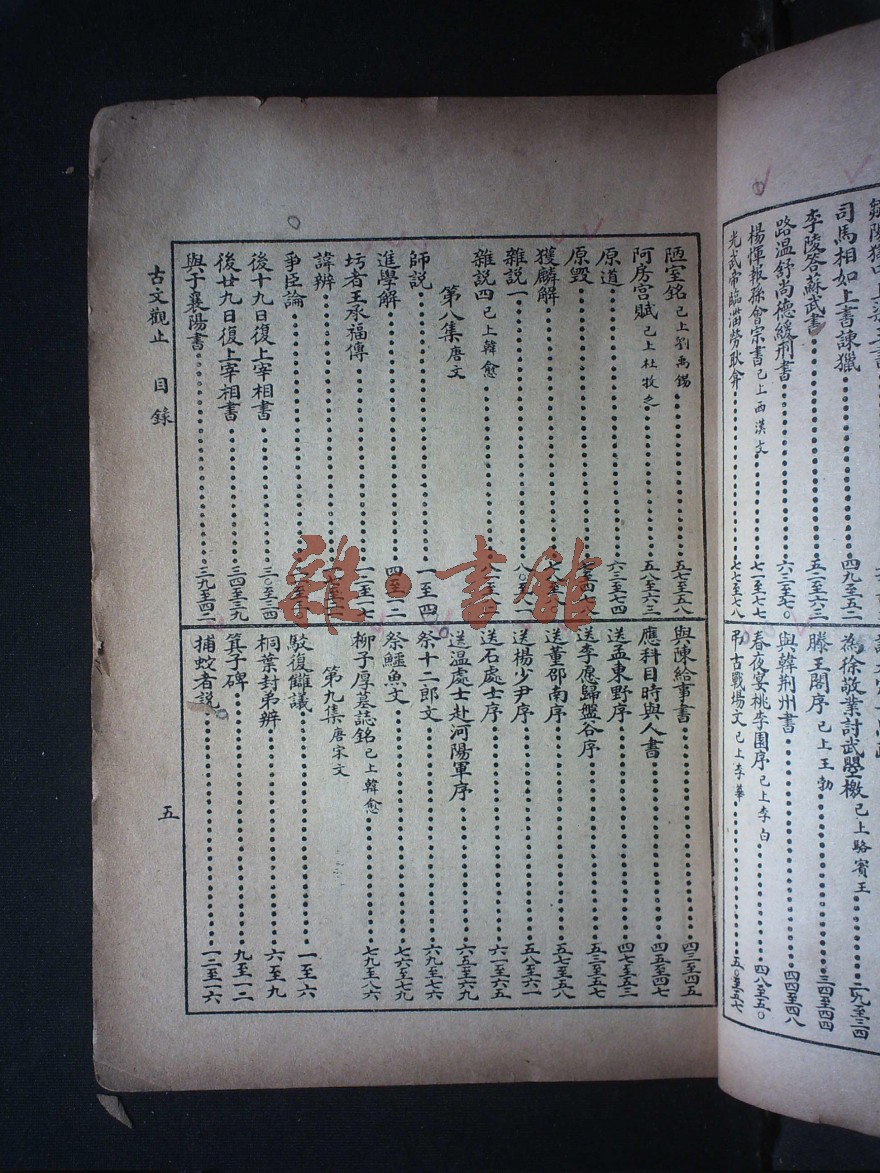 司馬相如上書諫獵 四九至五二
李陵答蘇武書 五二至六三
路溫舒尚德緩刑書 六三至七〇
楊惲報孫會宗書 已上西漢文 七一至七七
光武帝臨淄勞耿弇 七七至七八
為徐敬業討武曌檄 已上駱賓王 二九至三四
滕王閣序 已上王勃 三四至四四
與韓荆州書 四四至四八
春夜宴桃李園序 已上李白 四八至五〇
弔古戰場文 已上李華 五〇至五七
陋室銘 已上劉禹錫 五七至五八
阿房宮賦 已上杜牧之 五八至六三
原道 六三至七四
原毀
獲麟解
雜説一
雜説四 已上韓愈
第八集 唐文
師説 一至四
進學解 四至一二
圬者王承福傳 一二至一七
諱辨
爭臣論
後十九日復上宰相書 三〇至三四
後廿九日復上宰相書 三四至三九
與于襄陽書 三九至四二
與陳給事書 四三至四五
應科目時與人書 四五至四七
送孟東野序 四七至五三
送李愿歸盤谷序 五三至五七
送董邵南序 五七至五八
送楊少尹序 五八至六一
送石處士序 六一至六五
送溫處士赴河陽軍序 六五至六九
祭十二郎文 六九至七六
祭鱷魚文 七六至七九
柳子厚墓誌銘 已上韓愈 七九至八六
第九集 唐宋文
駁復讎議 一至六
桐葉封弟辨 六至九
箕子碑 九至一二
捕蛇者説 一二至一六
古文觀止 目錄
五
雜·書館